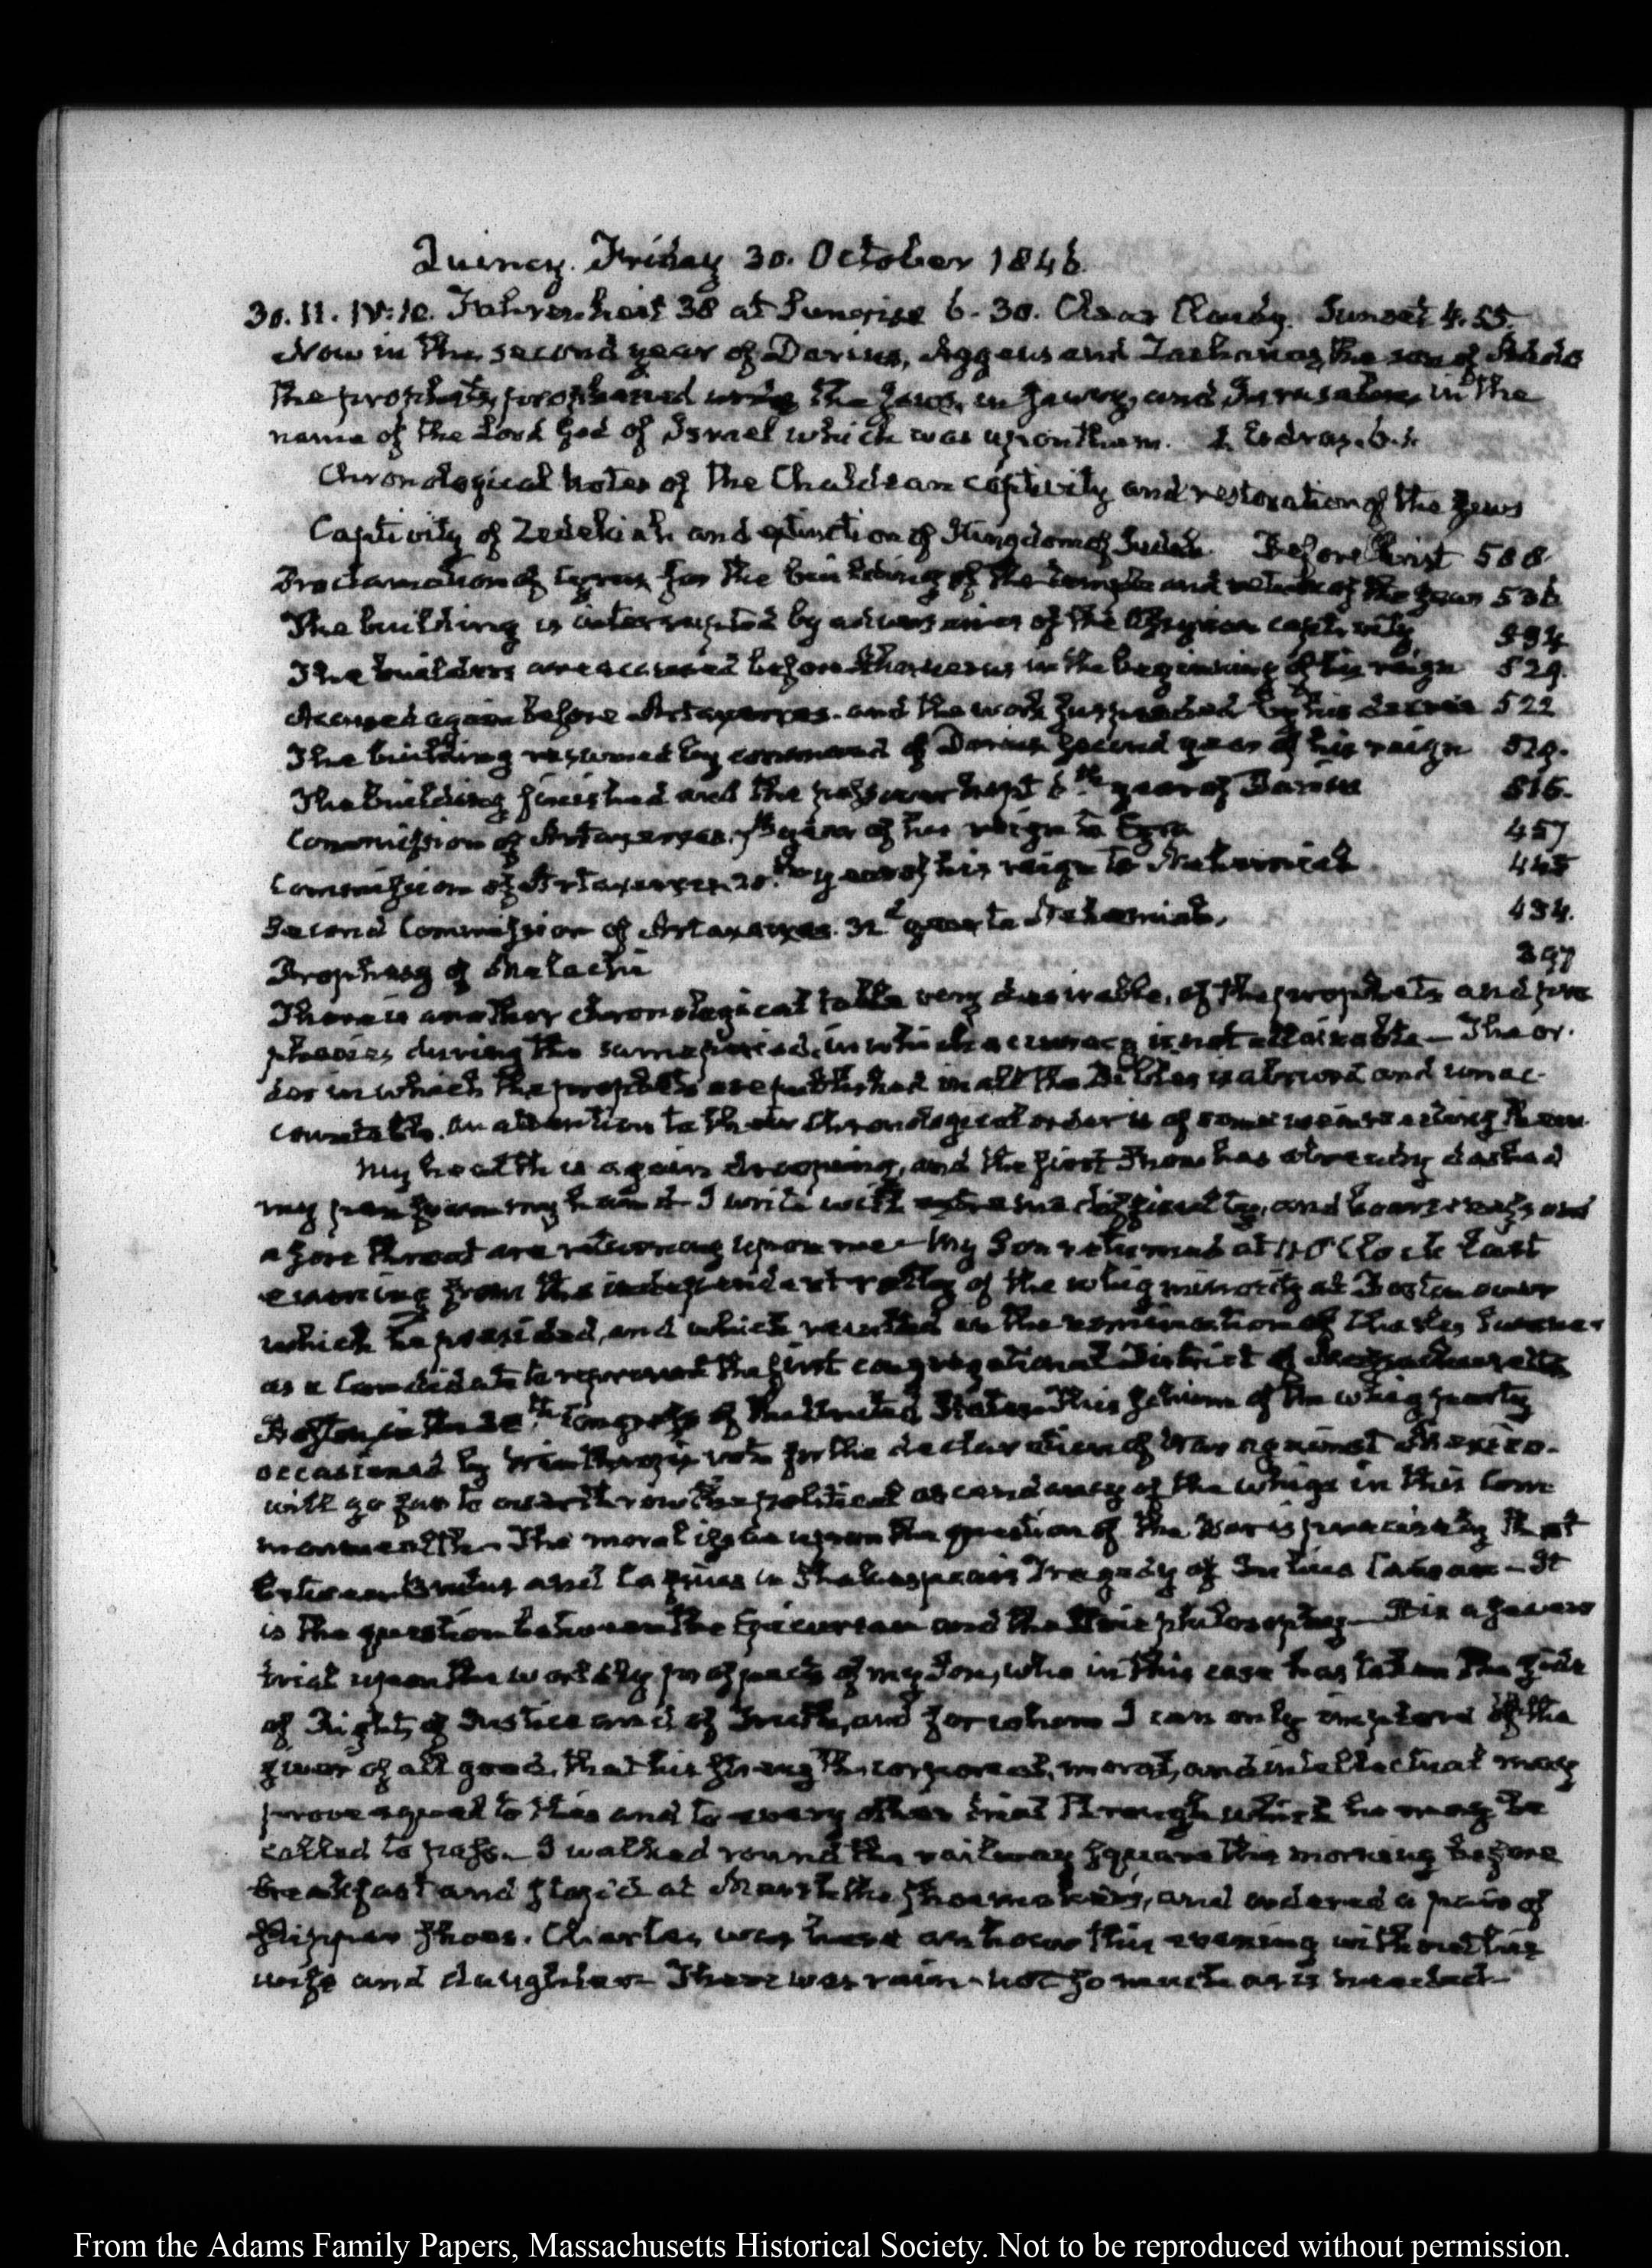 Quincy. Friday 30. October 1846.
30. II. IV:10. Fahrenheit 38 at Sunrise 6.30. Clear Cloudy. Sunset 4.55.
Now in the second year of Darius, Aggeus and Zacharias, the son of Addo
the prophets, prophesied unto the Jews, in Jewry, and Jerusalem in the
name of the Lord God of Israel which was upon them. 1. Esdras. 6.1.
Chronological Notes of the Chaldean captivity and restoration of the Jews
Captivity of Zedekiah and extinction of Kingdom of Judah. Before Christ 588.
Proclamation of Cyrus for the building of the temple and return of the Jews 536.
The building is interrupted by adversaries of the captivity 534
The builders are accused before Ahasuerus in the beginning of his reign 529.
Accused again before Artaxerxes. and the work suspended by his decree 522
The building resumed by command of Darius second year of his reign 520.
The building finished and the passover kept 6th. year of Darius 515.
Commission of Artaxerxes. 7th year of his reign to Ezra 457
Commission of Artaxerxes. 20.th year of his reign to Nehemiah 445
Second Commission of Artaxerxes. 32d year to Nehemiah, 434.
Prophesy of Malachi 397
There is another chronological table very desirable, of the prophets and pro
phecies during the same period, in which accuracy is not attainable— The or-
der in which the prophets are published in all the Bibles is absurd and unac-
countable. an attention to their chronological order is of some
My health is again drooping, and the first Snow has already dashed
my pen from my hand— I write with extreme difficulty, and hoarseness and
a sore throat are returning upon me— My Son returned at 11 O'Clock last
evening from the independent rally of the whig minority at Boston over
which he presided, and which resulted in the nomination of Charles Sumner
as a Candidate to represent the first congregational District of Massachusetts
Boston, in the 30th. Congress of the United States. This schism of the whig party
occasioned by Winthrop's vote for the declaration of War against Mexico-
will go far to overthrow the political ascendancy of the whigs in this Com
monwealth. The moral issue upon the question of the War is precisely that
between Brutus and Cassius in Shakespear's Tragedy of Julius Caesar— It
is the question between the Epicurean and the Stoic philosophy— It is a severe
trial upon the worldly prospects of my Son, who in this case has taken the side
of Right, of Justice and of Truth, and for whom I can only implore of the
giver of all good, that his strength corporeal, moral, and intellectual may
prove equal to this and to every other trial through which he may be
called to pass. I walked round the railway square this morning before
breakfast and stop'd at Marsh the shoemaker's, and ordered a pair of
slipper shoes. Charles was here an hour this evening without his
wife and daughter— There was rain. not so much as is needed—
From the Adams Family Papers, Massachusetts Historical Society. Not to be reproduced without permission.